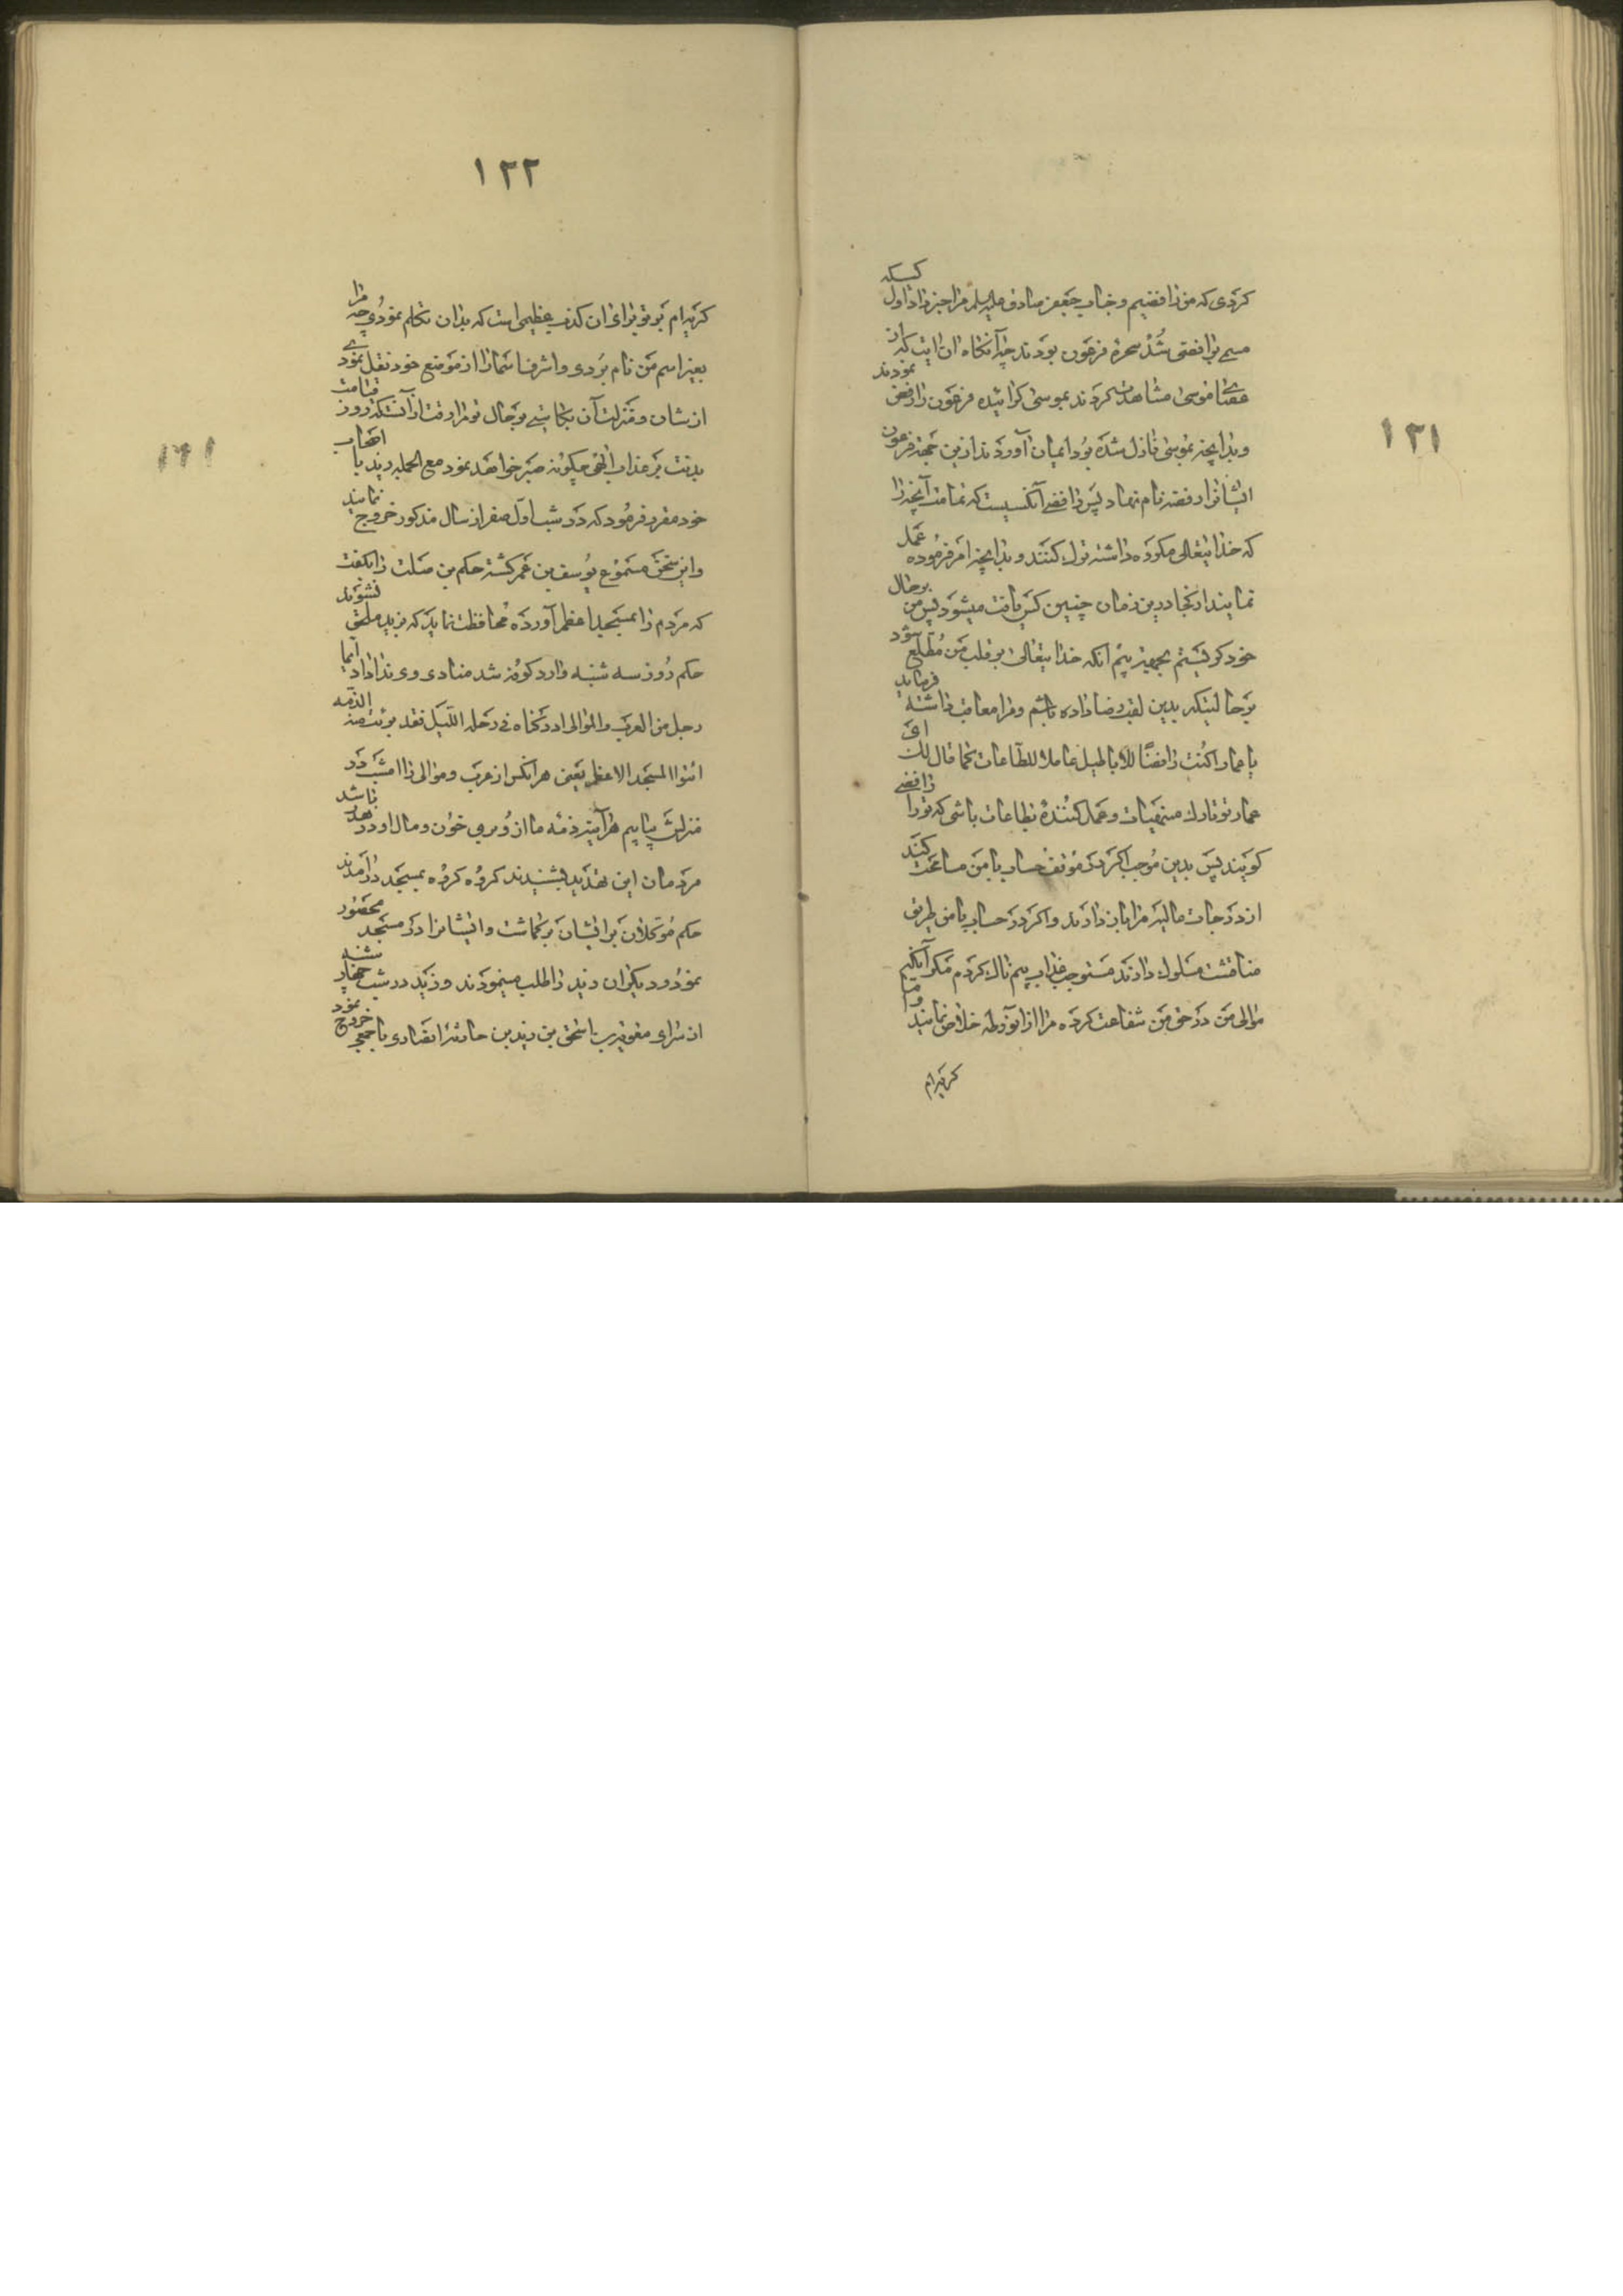 ۱۳۱
کردی که من رافضیم و جناب جعفر صادق علیه السلم مرا خبر داد اول کسیکه
مسمی برافضی شد سحره فرعون بودند چه آنگاه ان ایت که از
عصای موسی مشاهده کردند بموسی گرائیده فرعون را رفض نمودند
و بدانچه بموسی نازل شده بود ایمان آوردند ازین جهة فرعون
ایشانرا رفضه نام نهاد پس رافضی آنکسیست که تمامت آنچه را
که خدایتعالی مکروه داشته ترک کنند و بدانچه امر فرموده عمل
نمایند ار کجا درین زمان چنین کس یافت میشود پس من برحال
خود گریستم بجهة بیم انکه خدایتعالی بر قلب من مطلع شود
برحالیتیکه بدین لقب رضا داده باشم و مرا معاقب داشته فرماید
یا عمار اکنت رافضا للاباطیل عاملا للطاعات کما قال لک ای
عمار تو تارک منهیات و عمل کننده بطاعات باشی که ترا رافضی
گویند پس بدین موجب اگر در موقف حساب با من مسامحت کنند
از درجات عالیه مرا باز دارند و اگر در حساب با من طریق
مناقشت مسلوک دارند مستوجب عذاب بیم ناک گردم مگر آنکه
موالی من در حق من شفاعت کرده مرا ازا نورطه خلاص نمایند و اما
گریه ام
۱۳۲
گریه ام بر تو برای ان کذب عظیمی است که بدان تکلم نمودی چه مرا
بغیر اسم من نام بردی و اشرف اسما را از موضع خود نقل نمودی
از شان و منزلت آن بکاستی بر حال تو مرا رقت ازآنستکه روز قیامت
بدنت بر عذاب الهی چگونه صبر خواهد نمود مع الجمله زید با اصحاب
خود مقرر فرمود که در شب اول صفر از سال مذکور خروج نمایند
و این سخن مسموع یوسف بن عمر گشته حکم بن صلت را بگفت
که مردم را بمسجد اعظم آورده محافظت نماید که بزید ملحق نشوند
حکم روز سه شنبه وارد کوفه شد منادی وی ندا داد ایما
رجل من العرب و الموالی ادرکناه فی رحله اللیل فقد برئت منه الذمه
ائتوا المسجد الاعظم یعنی هر آنکس از عرب و موالی را امشب در
منزلش بیابیم هر آینه ذمه ما از و بری خون و مال او هدر باشد
مردمان این تهدید بشنیدند کروه کروه بمسجد درآمدند
حکم موکلان بر ایشان بر گماشت و ایشانرا در مسجد محصور
نمود و دیگران زید را طلب مینمودند و زید در شب چهار شنبه
از سرای معویة بن اسحق بن زید بن حارثة انصاری با جمعی خروج نمود